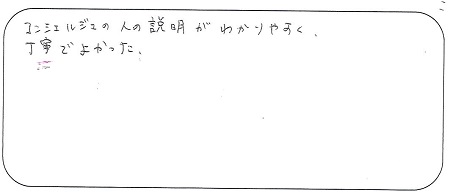 コンシェルジュの人の説明がわかりやすく、
丁寧でよかった。